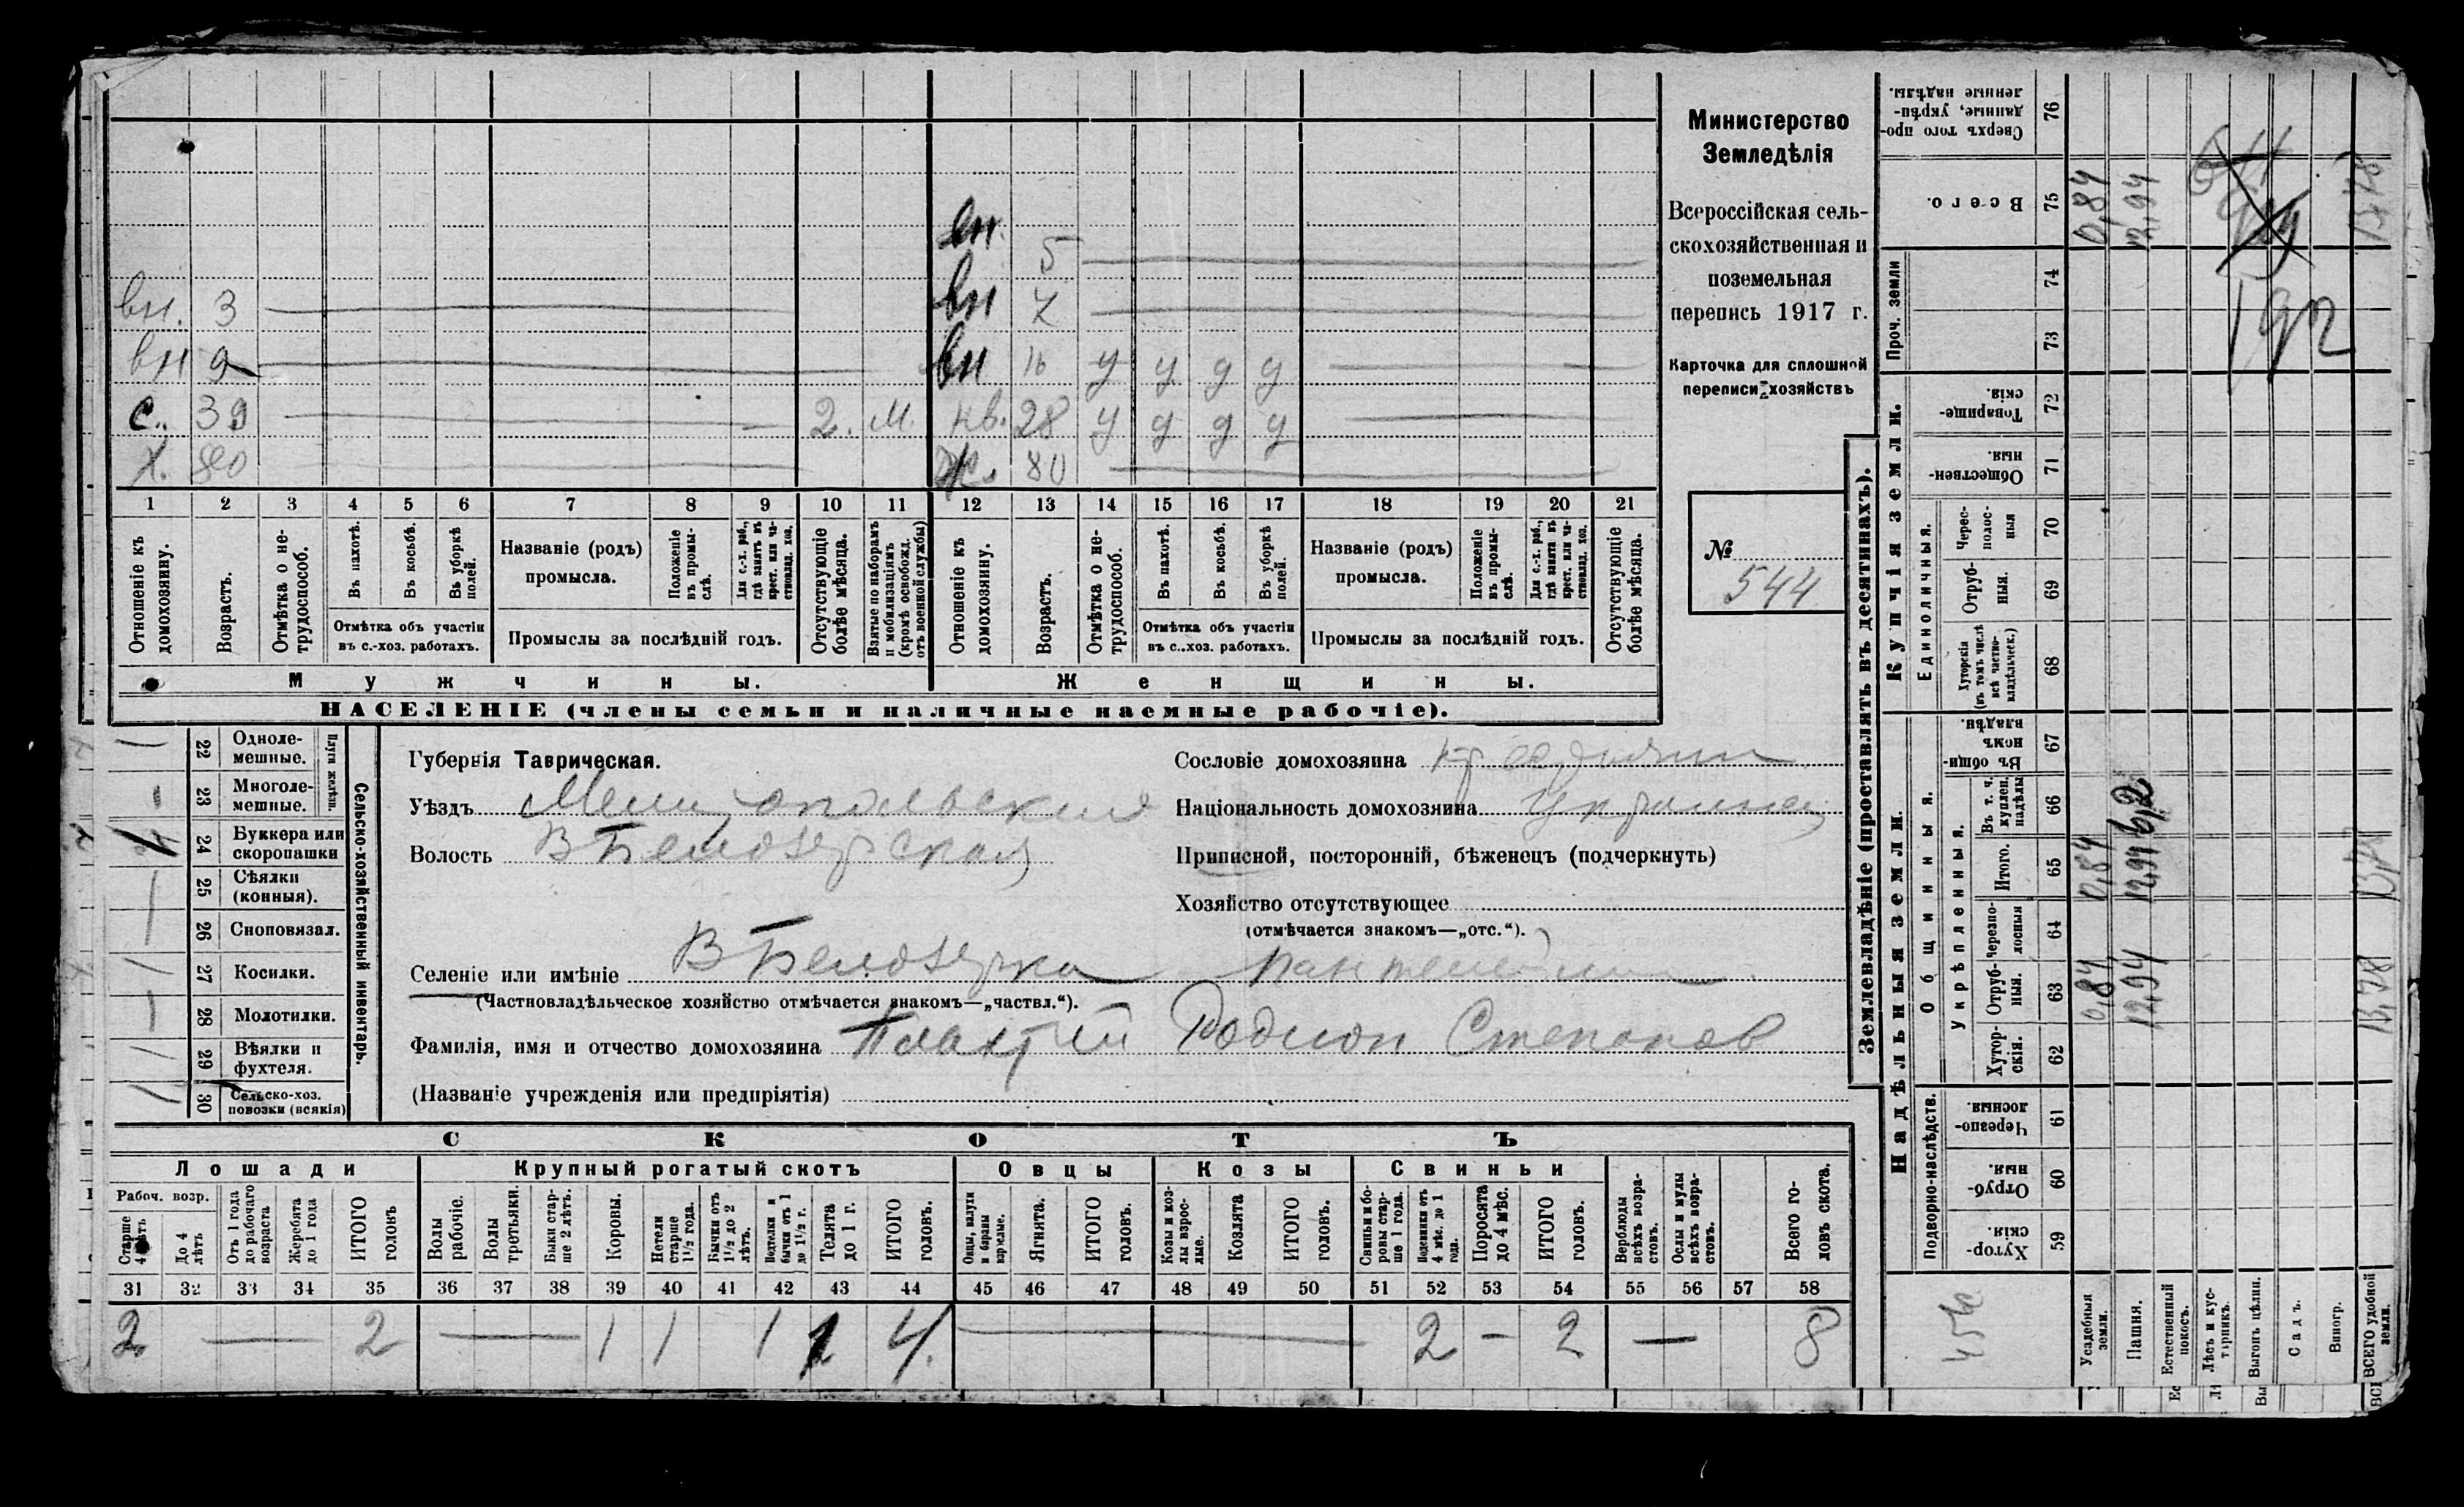 Министерство
Земледѣлія
Всероссійская сель-
скохозяйственная и
поземельная
перепись 1917 г.
Карточка для сплошной
переписи хозяйствъ
№
544
вн. 5
вн. 3 вн 7
вн 9 вн 16 у у у у
с. 39 2. м. нв. 28 у у у у
х. 80 ж. 80
1 2 3 4 5 6 7 8 9 10 11 12 13 14 15 16 17 18 19 20 21
Отношеніе къ домохозяину.
Возрастъ.
Отмѣтка о не-трудоспособ.
Въ пахотѣ.
Въ косьбѣ.
Въ уборкѣ полей.
Названіе (родъ) промысла.
Положеніе въ промы-слѣ.
Для с.-х. раб., гдѣ занятъ въ крест. или ча-стновлад. хоз.
Отсутствующіе болѣе мѣсяца.
Взятые по наборамъ и мобилизаціямъ (кромѣ освобожд. отъ военной службы)
Отношеніе къ домохозяину.
Возрастъ.
Отмѣтка о не-трудоспособ.
Въ пахотѣ.
Въ косьбѣ.
Въ уборкѣ полей.
Названіе (родъ) промысла.
Положеніе въ промы-слѣ.
Для с.-х. раб., гдѣ занята въ крест. или ча-стновлад. хоз.
Отсутствующіе болѣе мѣсяца.
Отмѣтка объ участіи въ с.-хоз. работахъ.
Промыслы за послѣдній годъ.
Отмѣтка объ участіи въ с..хоз. работахъ.
Промыслы за послѣдній годъ.
Мужчины. Женщины.
НАСЕЛЕНІЕ (члены семьи и наличные наемные рабочіе).
Сельско-хозяйственный инвентарь.
Плуги желѣзн.
22 Одноле-мешные.
23 Многоле-мешные.
24 Буккера или скоропашки
25 Сѣялки (конныя).
26 Сноповязал.
27 Косилки.
28 Молотилки.
29 Вѣялки и фухтеля.
30 Сельско-хоз. повозки (всякія)
Губернія Таврическая.
Уѣздъ Мелитопольский
Волость В Белозерская
Селеніе или имѣніе В Белозерка
(Частновладѣльческое хозяйство отмѣчается знакомъ—„частвл.“).
Фамилія, имя и отчество домохозяина Родион Степанов
(Названіе учрежденія или предпріятія)
Сословіе домохозяина крестьянин
Національность домохозяина украинец
Приписной, посторонній, бѣженецъ (подчеркнуть)
Хозяйство отсутствующее
(отмѣчается знакомъ—„отс.“).
СКОТЪ
Лошади Крупный рогатый скотъ Овцы Козы Свиньи
Рабоч. возр.
Старше 4 лѣтъ
До 4 лѣтъ
Отъ 1 года до рабочаго возраста
Жеребята до 1 года
ИТОГО головъ
Волы рабочіе.
Волы третьяки.
Быки стар-ше 2 лѣтъ.
Коровы.
Нетели старше 1½ года.
Бычки отъ 1½ до 2 лѣтъ.
Подтелки и бычки отъ 1 до 1½ г.
Телята до 1 г.
ИТОГО головъ.
Овцы, валухи и бараны взрослые.
Ягнята.
ИТОГО головъ.
Козы и коз-лы взрос-лые.
Козлята
ИТОГО головъ.
Свиньи и бо-ровы стар-ше 1 года.
Подсвинки отъ 4 мѣс. до 1 года.
Поросята до 4 мѣс.
ИТОГО головъ.
Верблюды всѣхъ возра-стовъ.
Ослы и мулы всѣхъ возра-стовъ.
Всего го-ловъ скота.
31 32 33 34 35 36 37 38 39 40 41 42 43 44 45 46 47 48 49 50 51 52 53 54 55 56 57 58
2 — 2 — 1 1 1 1 4. — 2 — 2 — 8
Землевладѣніе (проставлять въ десятинахъ).
Надѣльныя земли.
Купчія земли.
Проч. земли
Подворно-наслѣдств.
Общинныя.
Укрѣпленныя.
Единоличныя.
Хутор-скія. 59
Отруб-ныя. 60
Черезпо-лосныя. 61
Хутор-скія. 62
Отруб-ныя. 63
Черезпо-лосныя 64
Итого. 65
Въ т. ч. куплен. надѣлы 66
Въ общин-номъ владѣн. 67
Хуторскія (въ томъ числѣ всѣ частно-владѣльческ.) 68
Отруб-ныя. 69
Черес-полос-ныя 70
Обществен-ныя. 71
Товарище-скія. 72
73
74
Всего. 75
Сверхъ того про-данные, укрѣп-ленные надѣлы. 76
Усадебныя земли. 0,84 0,84 0,84
Пашня. 12,94 12,94 6,2 12,94
Естественный покосъ.
Лѣсъ и кус-тарникъ.
Выгонъ цѣлин.
Садъ.
Виногр.
ВСЕГО удобной земли. 13,78 13,78 13,78
192